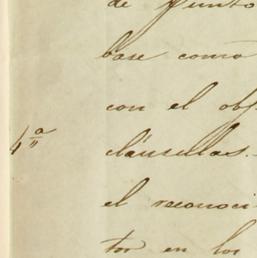 de punto
base como
con el obj
4ª cláusulas.-
el reconoci
tor en los